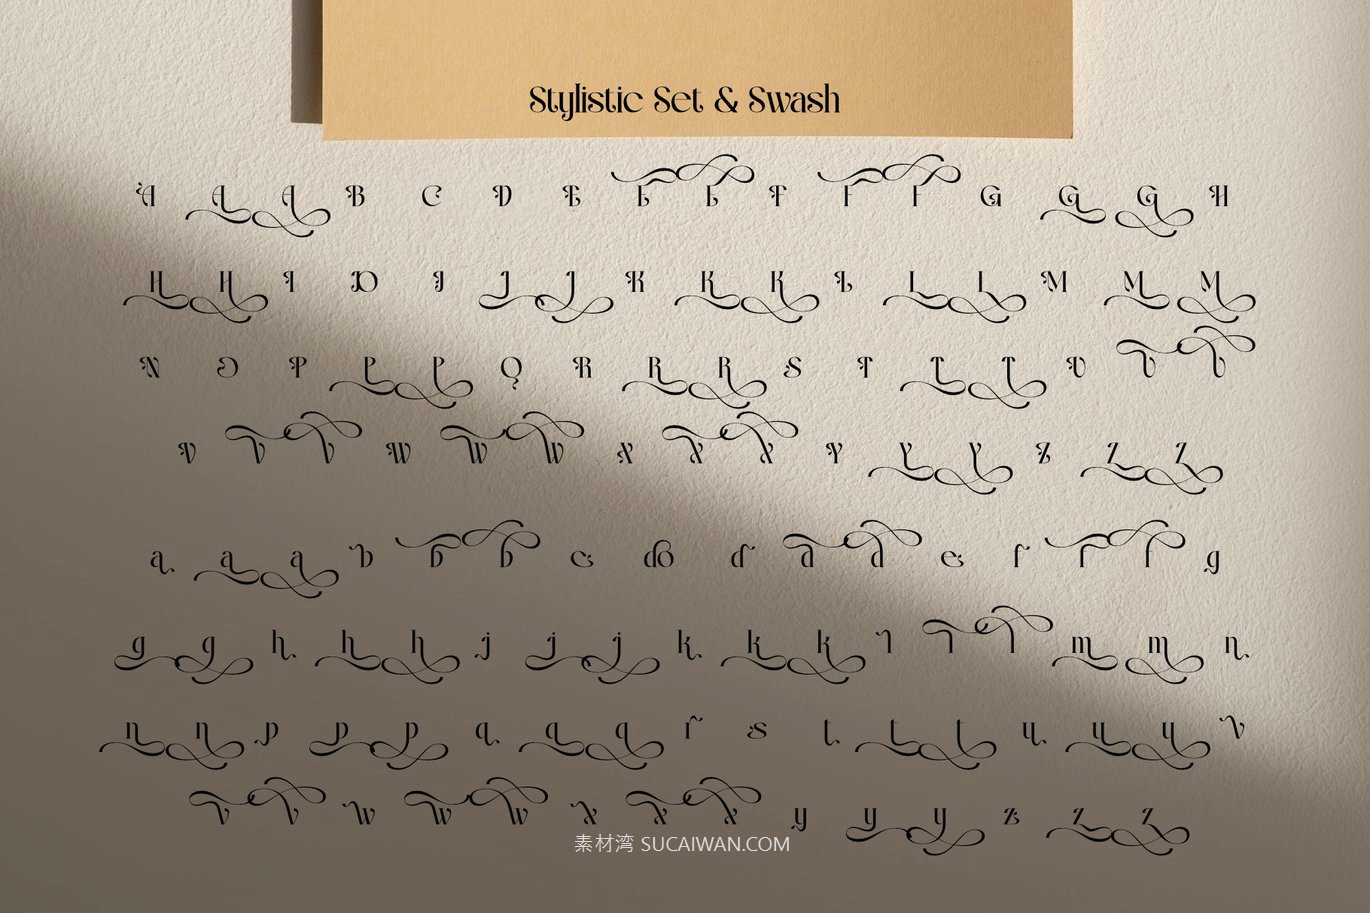 Stylistic Set & Swash
A A A B C D E E E F F F G G G H
H H I D J J J K K K L L L M M M
N O P P P Q R R R S T T T U U U
V V V W W W X X X Y Y Y Z Z Z
a a a b b b c db d d d e f f f g
g g h h h j j j k k k l l l m m n
n n p p p q q q r s t t t u u u v
v v w w w x x x y y y z z z
素材湾 SUCAIWAN.COM